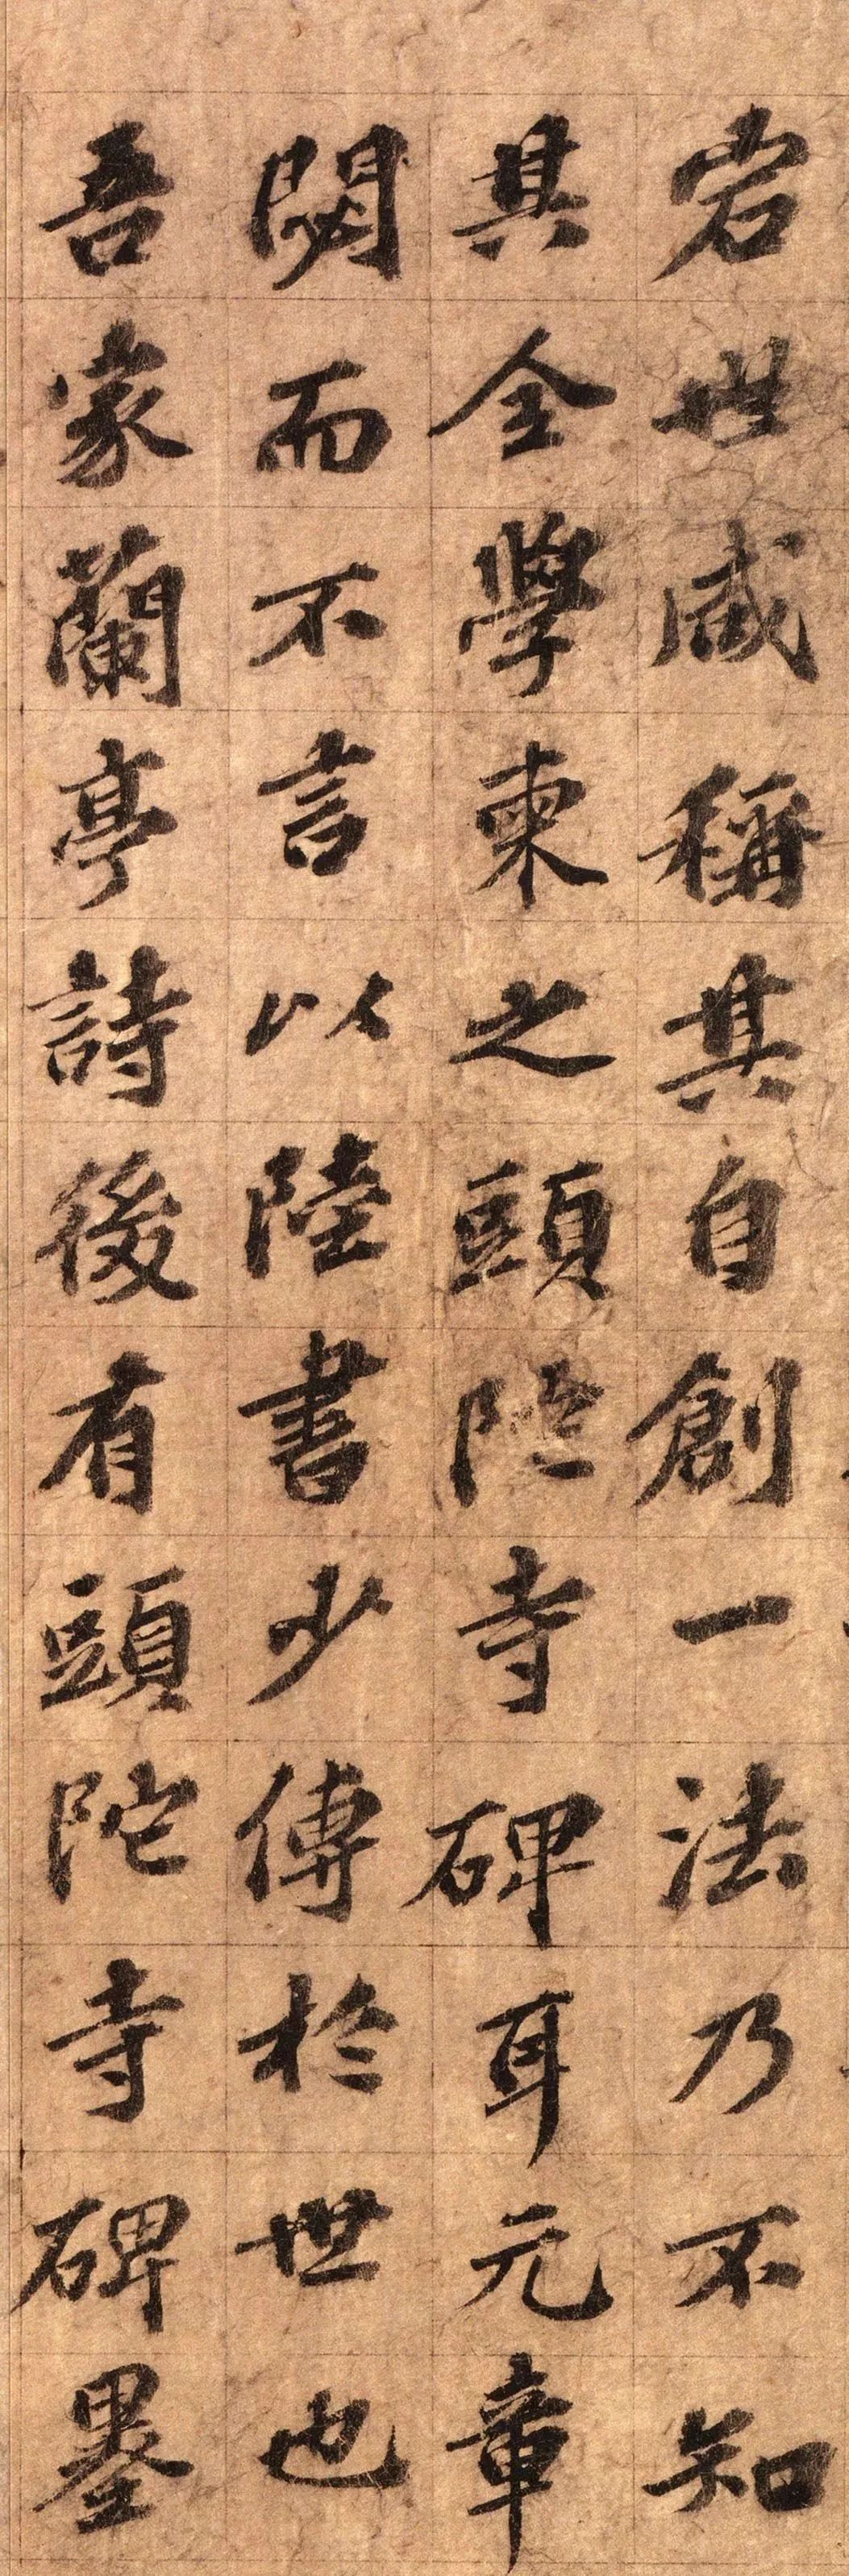 宕世咸稱其自創一法乃不知
其全學柬之頭陁寺碑耳元章
閟而不言以陸書少傳於世也
吾家蘭亭詩後有頭陀寺碑墨